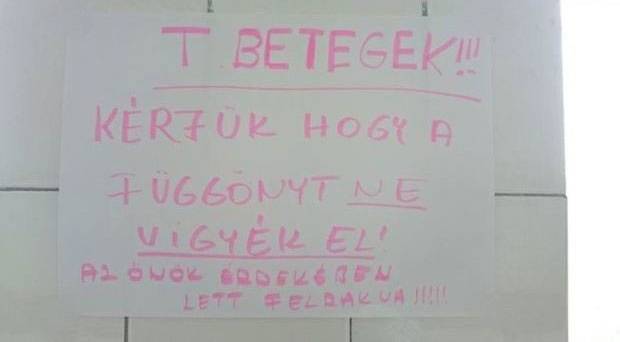 T. BETEGEK!!!
KÉRJÜK HOGY A
FÜGGÖNYT NE
VIGYÉK EL!
AZ ÖNÖK ÉRDEKÉBEN
LETT FELRAKVA!!!!!